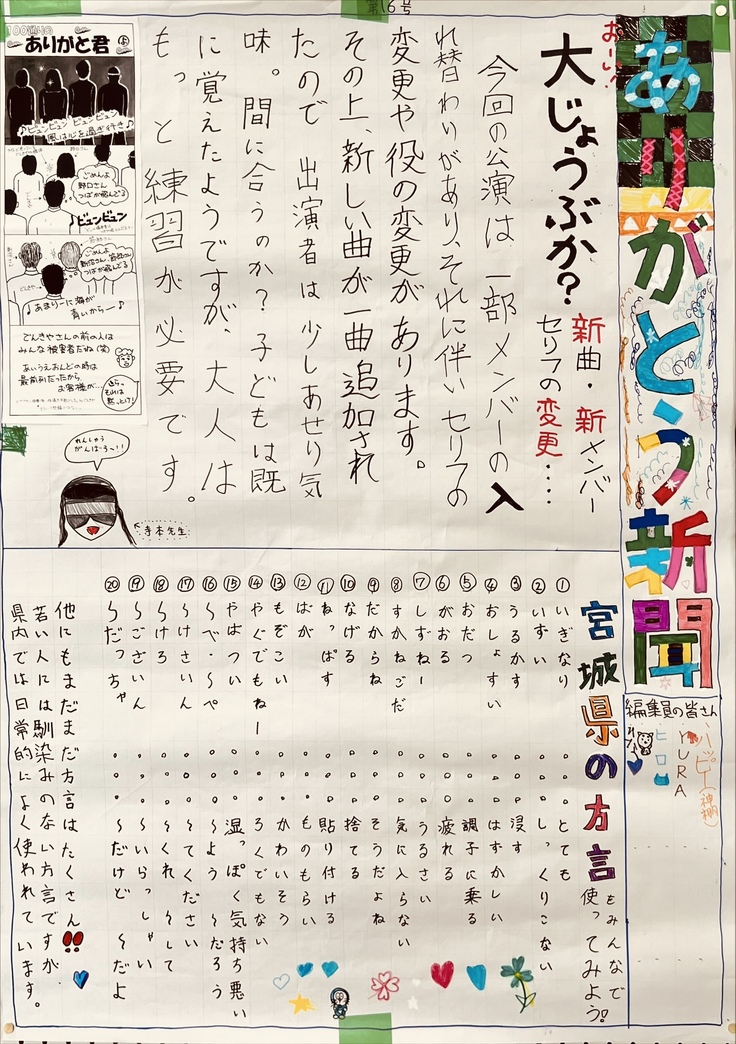 第16号
ありがとう新聞
編集員の皆さん
ハッピー(神棚)
YURA
ヒロ
おーい!
大じょうぶか?
新曲・新メンバー
セリフの変更・・・・
今回の公演は一部メンバーの入
れ替わりがあり、それに伴いセリフの
変更や役の変更があります。
その上、新しい曲が一曲追加され
たので 出演者は少しあせり気
味。間に合うのか?子どもは既
に覚えたようですが、大人は
もっと練習が必要です。
ありがと君
♪ビュンビュンビュンビュン
風は心を過ぎ行き♪
ごめんよ
野口さん
つばが飛んでる
ビュンビュン
ごめんよ
つばが飛んでる
♪あまりーに海が
青いからー♪
でんきやさんの前の人は
みんな被害者だね(笑)
あいうえおんどの時は
最前列だったから
お客様が…
れんしゅう
がんばろ〜!!
寺本先生
宮城県の方言
をみんなで
使ってみよう!
①いぎなり 。。。とても
②いずい 。。。しっくりこない
③うるかす 。。。浸す
④おしょすい 。。。はずかしい
⑤おだつ 。。。調子に乗る
⑥がおる 。。。疲れる
⑦しずねー 。。。うるさい
⑧すかねごだ 。。。気に入らない
⑨だからね 。。。そうだよね
⑩なげる 。。。捨てる
⑪ねっぱす 。。。貼り付ける
⑫ばが 。。。ものもらい
⑬もぞこい 。。。かわいそう
⑭やぐでもねー 。。。ろくでもない
⑮やばつい 。。。湿っぽく気持ち悪い
⑯〜べ・〜ぺ 。。。〜よう 〜だろう
⑰〜けさいん 。。。〜てください
⑱〜けろ 。。。〜くれ 〜して
⑲〜ございん 。。。〜いらっしゃい
⑳〜だっちゃ 。。。〜だけど 〜だよ
他にもまだまだ方言はたくさん!!
若い人には馴染みのない方言ですが
県内では日常的によく使われています。